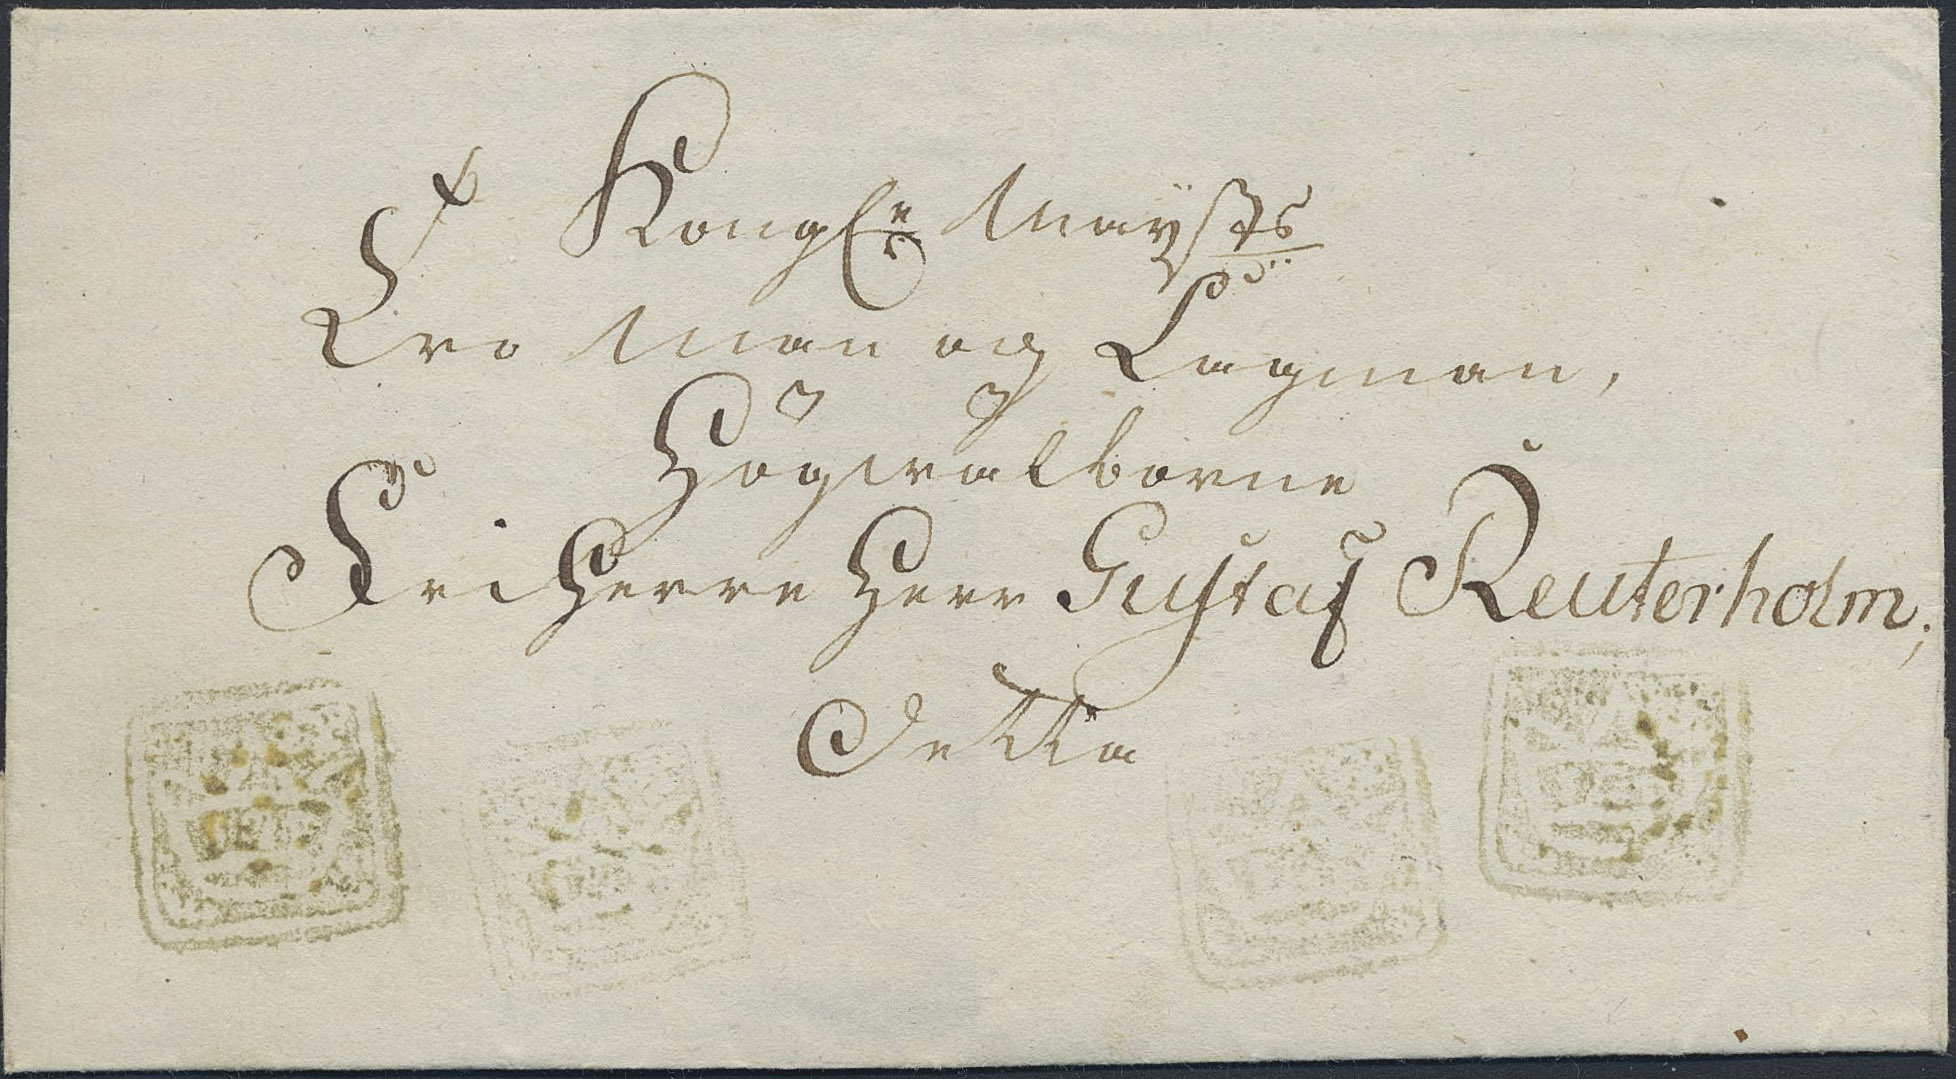 Kongl. Mayst:s
Tro Man och Lagman,
Högwälborne
Friherre Herr Gustaf Reuterholm;
Detta